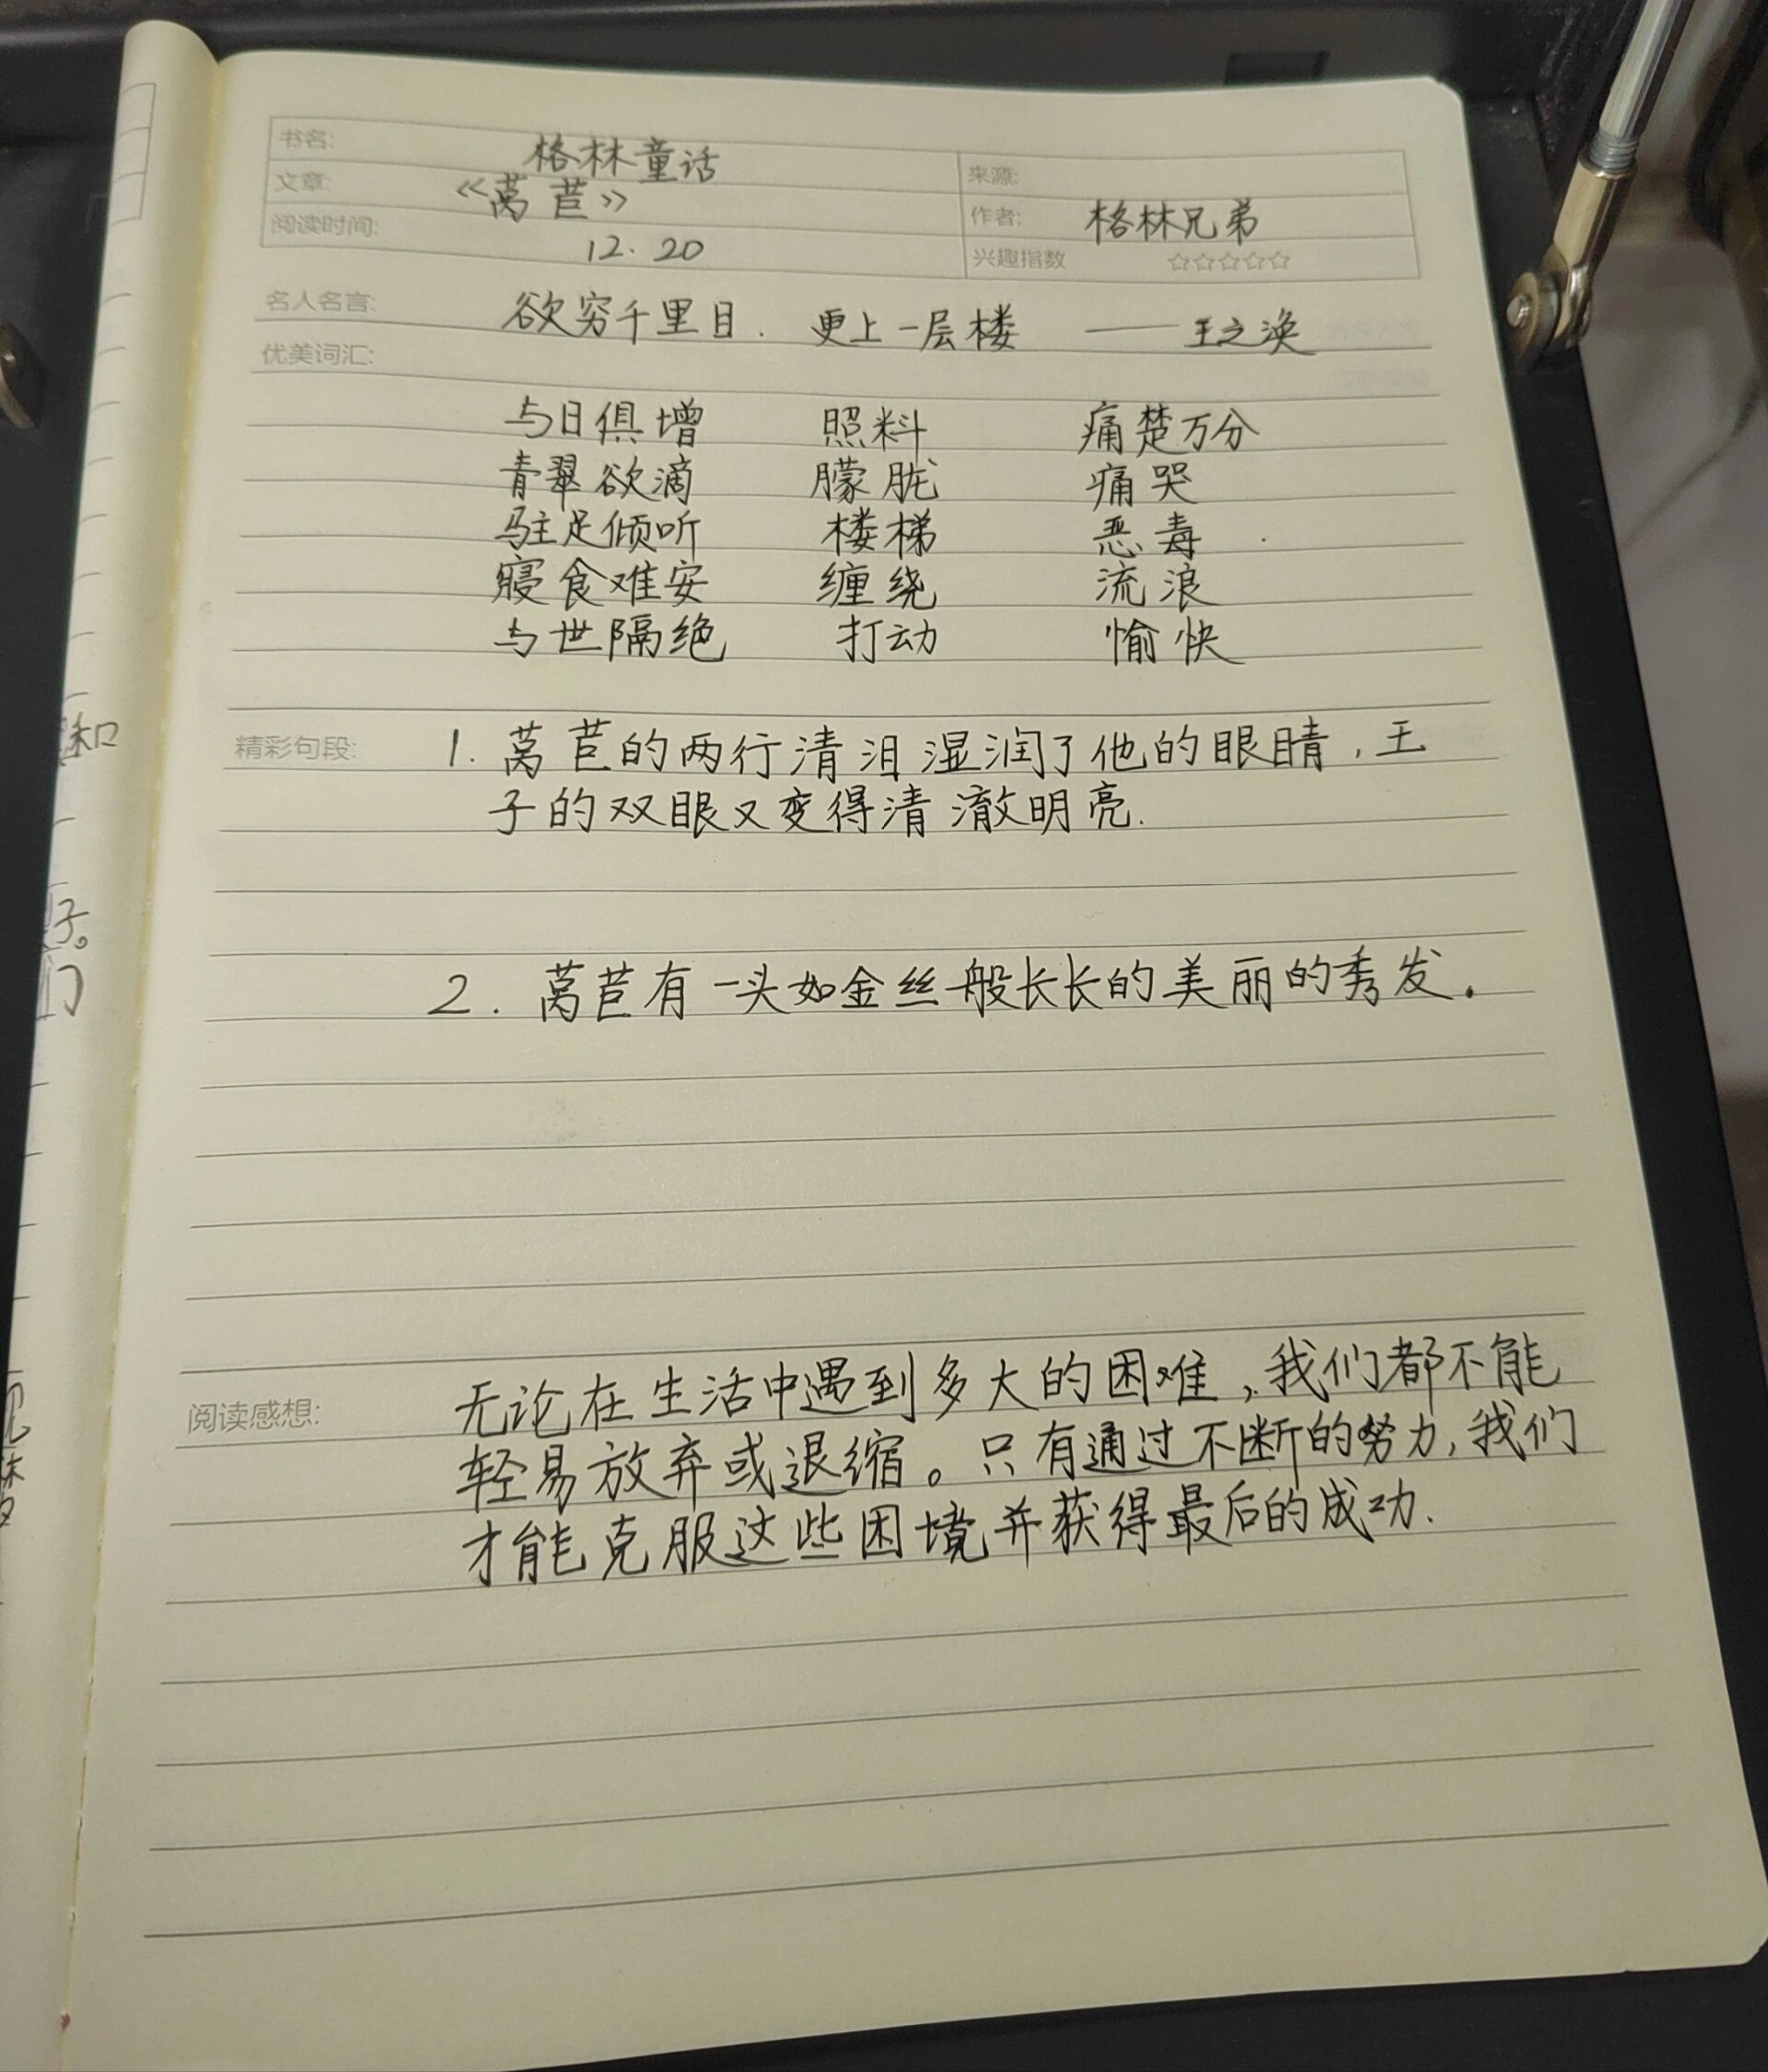 书名: 格林童话
来源:
文章: 《莴苣》
作者: 格林兄弟
阅读时间: 12.20
兴趣指数 ☆☆☆☆☆
名人名言: 欲穷千里目. 更上一层楼 ——王之涣
优美词汇:
与日俱增 照料 痛楚万分
青翠欲滴 朦胧 痛哭
驻足倾听 楼梯 恶毒
寝食难安 缠绕 流浪
与世隔绝 打动 愉快
精彩句段: 1. 莴苣的两行清泪湿润了他的眼睛,王
子的双眼又变得清澈明亮.
2. 莴苣有一头如金丝般长长的美丽的秀发.
阅读感想: 无论在生活中遇到多大的困难,我们都不能
轻易放弃或退缩。只有通过不断的努力,我们
才能克服这些困境并获得最后的成功.